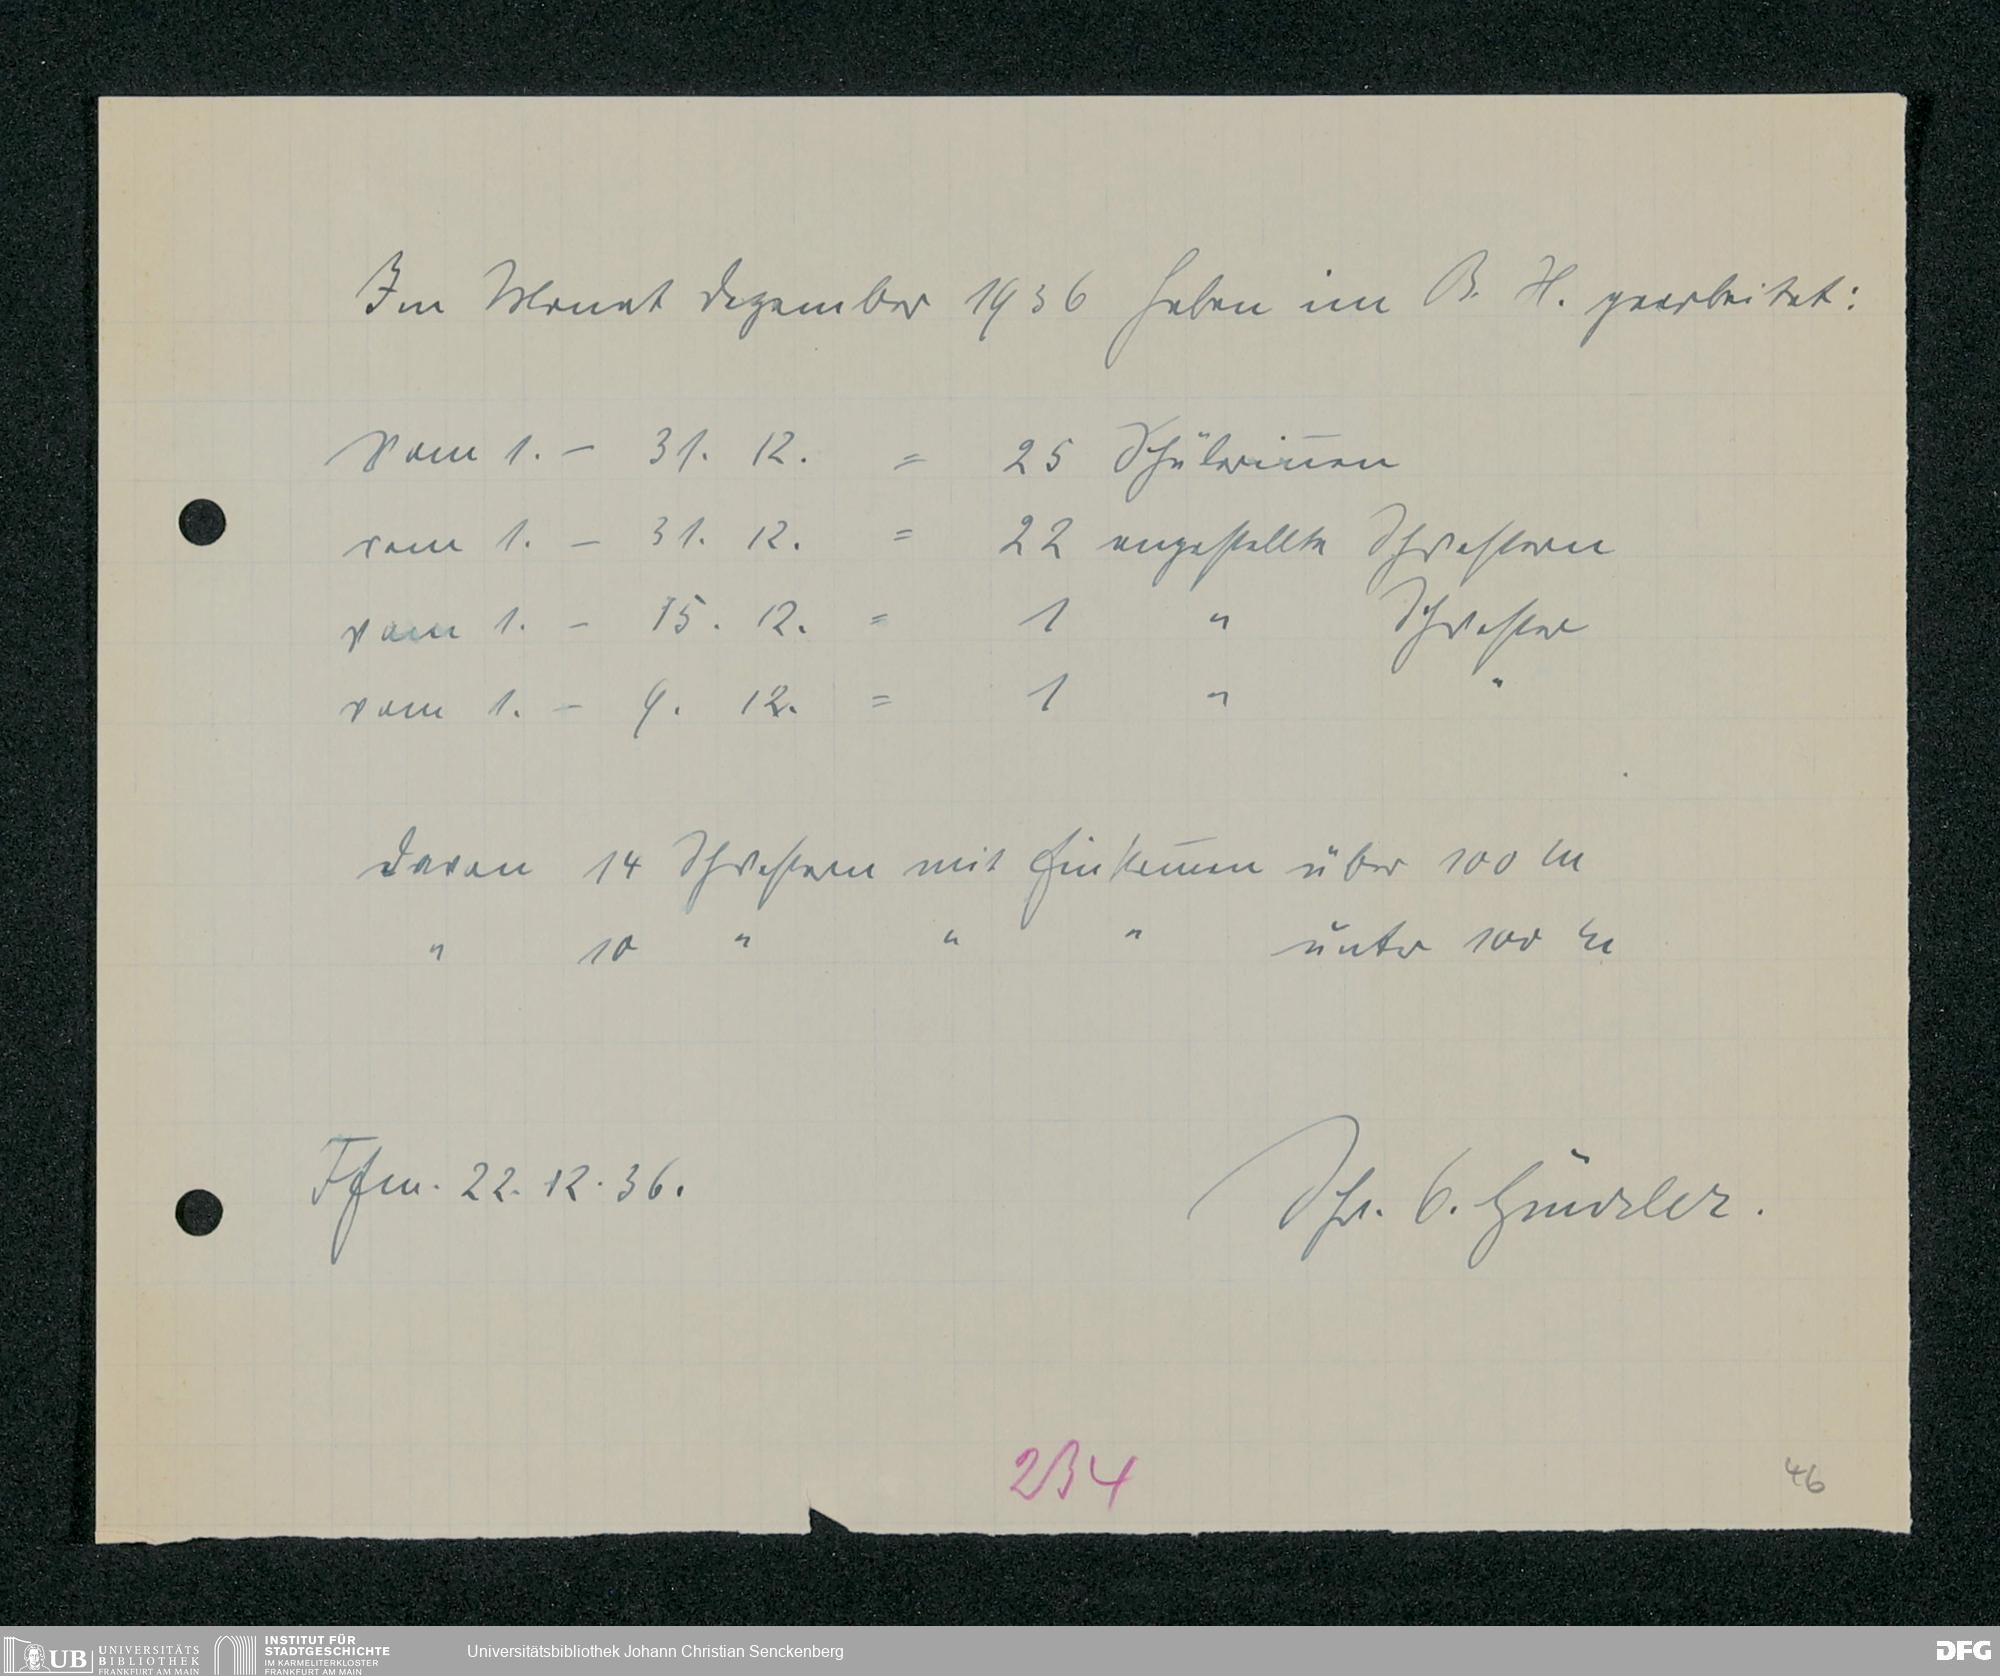 Im Monat Dezember 1936 haben im B. H. gearbeitet:
Vom 1. – 31. 12. = 25 Schülerinnen
vom 1. – 31. 12. = 22 angestellte Schwestern
vom 1. – 15. 12. = 1 " Schwester
vom 1. – 9. 12. = 1 " "
Davon 14 Schwestern mit Einkommen über 100 M
" 10 " " " unter 100 M
Ffm. 22. 12. 36.
Schw.
234
46
UB UNIVERSITÄTS
BIBLIOTHEK
FRANKFURT AM MAIN
INSTITUT FÜR
STADTGESCHICHTE
IM KARMELITERKLOSTER
FRANKFURT AM MAIN
Universitätsbibliothek Johann Christian Senckenberg
DFG